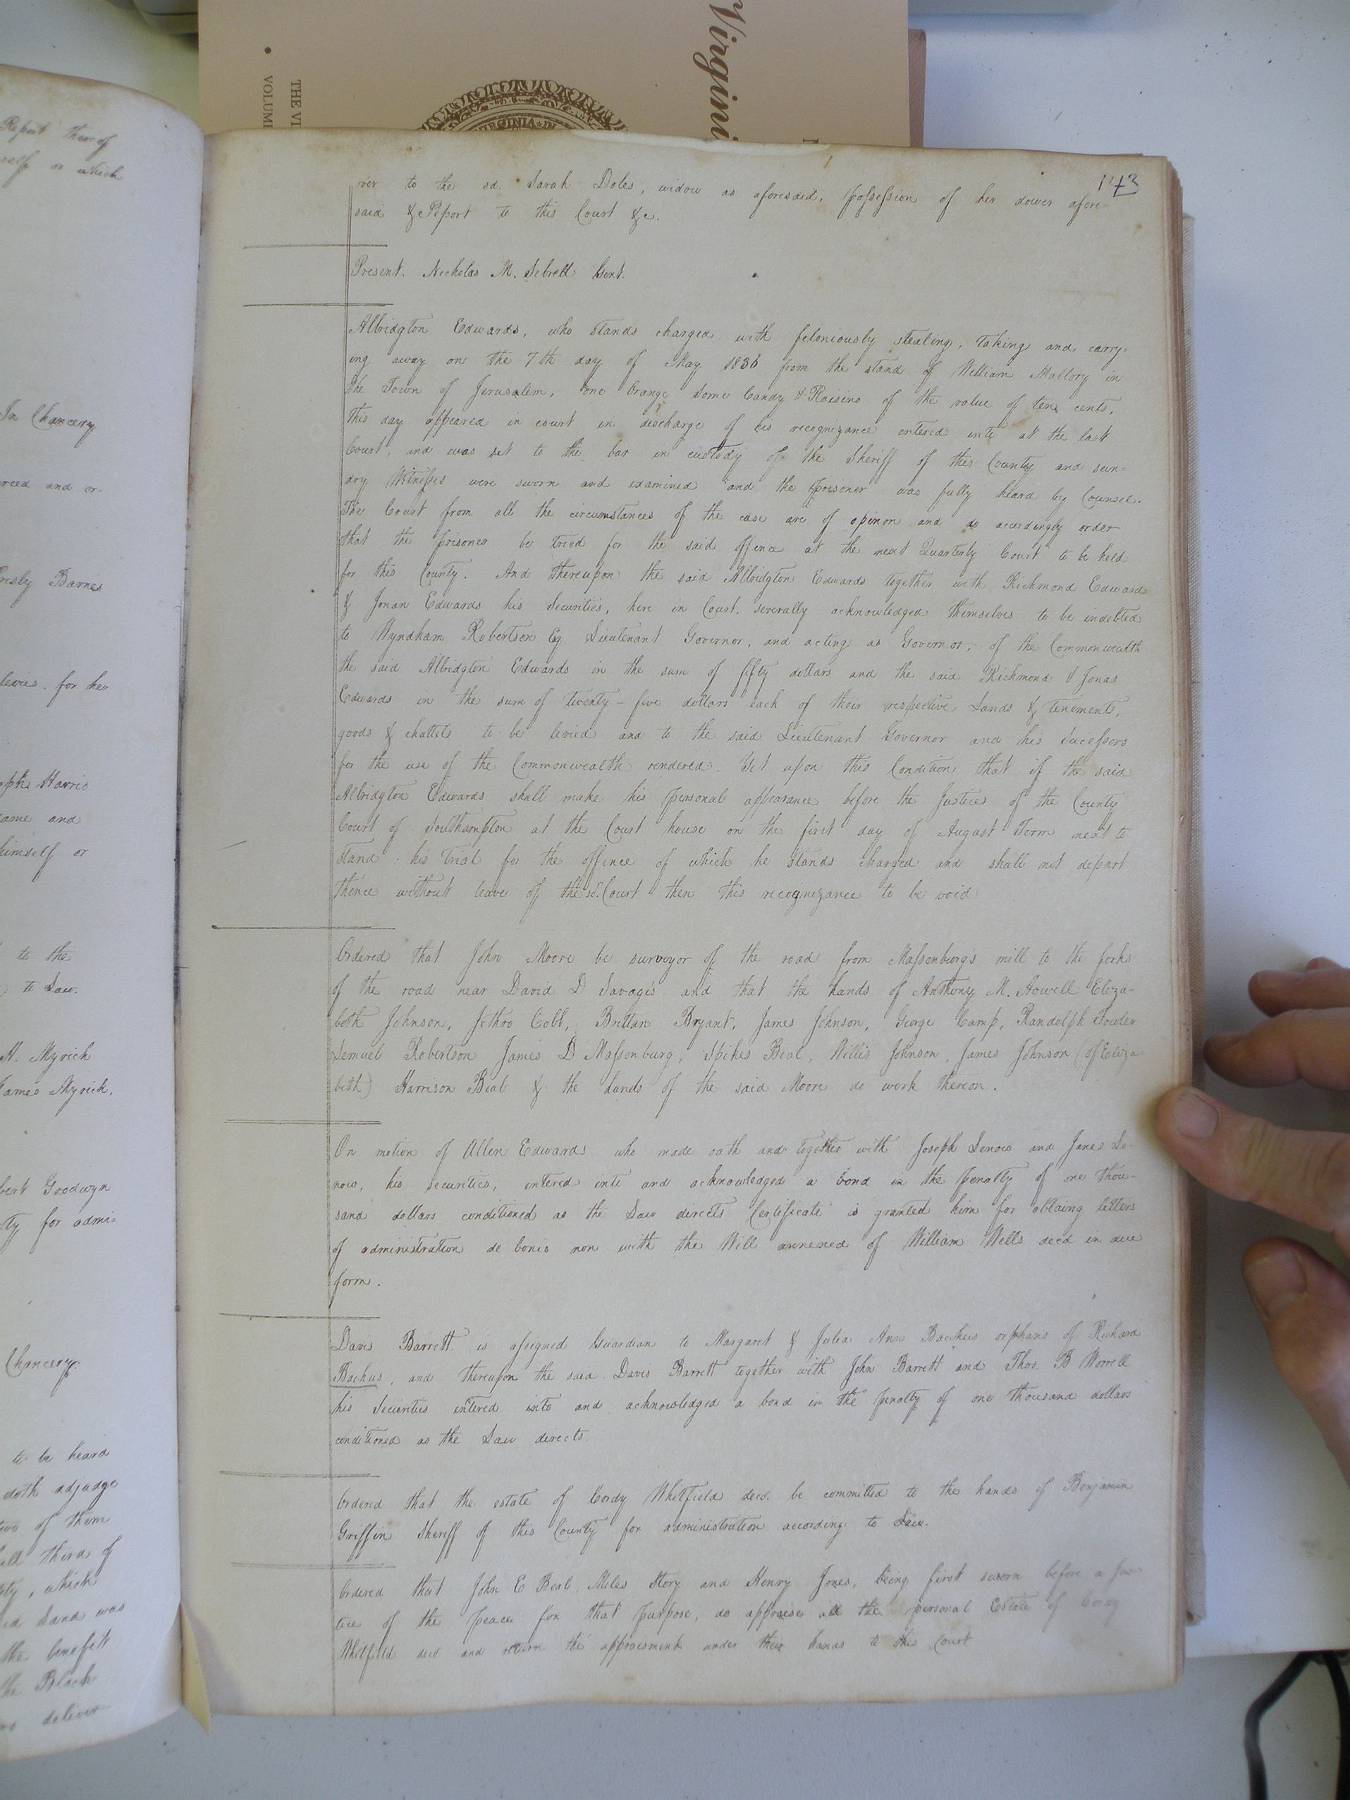 Virgini
VIRGINIA
THE VI
VOLUM
Report thereof
self or which
In Chancery
creed and or-
resly Barnes
levies for her
eph Harris
came and
himself or
to the
to Law.
H. Myrick
James Myrick,
bert Goodwyn
ty for admi-
Chancery
to be heard
doth adjudge
two of them
third of
ty, which
land was
the benefit
the Black
deliver
143
ver to the sd. Sarah Doles, widow as aforesaid, possession of her dower afore-
said & Report to this Court &c.
Present. Nicholas M. Sebrell Gent.
Albridgton Edwards, who stands charged with feloniously stealing, taking and carry-
ing away on the 7th day of May 1836 from the stand of William Mallory in
the Town of Jerusalem, one Orange some Candy & Raisins of the value of ten cents,
this day appeared in court in discharge of his recognizance entered into at the last
Court, and was set to the bar in custody of the Sheriff of this County and sun-
dry Witnesses were sworn and examined and the prisoner was fully heard by Counsel.
The Court from all the circumstances of the case are of opinion and do accordingly order
that the prisoner be tried for the said offence at the next Quarterly Court to be held
for this County. And thereupon the said Albridgton Edwards together with Richmond Edwards
& Jonas Edwards his Securities, here in Court, severally acknowledged themselves to be indebted
to Wyndham Robertson Esq Lieutenant Governor, and acting as Governor, of the Commonwealth
the said Albridgton Edwards in the sum of fifty dollars and the said Richmond & Jonas
Edwards in the sum of twenty-five dollars each of their respective Lands & tenements,
goods & chattels to be levied and to the said Lieutenant Governor and his Successors
for the use of the Commonwealth rendered. Yet upon this Condition that if the said
Albridgton Edwards shall make his personal appearance before the Justices of the County
Court of Southampton at the Court house on the first day of August Term next to
stand his trial for the offence of which he stands charged and shall not depart
thence without leave of the sd. Court then this recognizance to be void
Ordered that John Moore be surveyor of the road from Massenburg's mill to the forks
of the road near David D Savage's and that the hands of Anthony M. Howell Eliza-
beth Johnson, Jethro Cobb, Brittan Bryant, James Johnson, George Camp, Randolph Fowler
Lemuel Robertson James D Massenburg, Spikes Beal, Willis Johnson, James Johnson (of Eliza-
beth) Harrison Beal & the hands of the said Moore do work thereon.
On motion of Allen Edwards who made oath and together with Joseph Lenow and James Le-
now, his securities, entered into and acknowledged a bond in the penalty of one thou-
sand dollars conditioned as the Law directs Certificate is granted him for obtaing letters
of administration de bonis non with the Will annexed of William Wells decd in due
form.
Davis Barrett is assigned Guardian to Margaret & Julia Ann Bacchus orphans of Richard
Bachus, and thereupon the said Davis Barrett together with John Barrett and Thos. B Worrell
his Securities entered into and acknowledged a bond in the penalty of one thousand dollars
conditioned as the Law directs
Ordered that the estate of Cordy Whitfield decd. be committed to the hands of Benjamin
Griffin Sheriff of this County for administration according to Law.
Ordered that John E Beal, Miles Story and Henry Jones, being first sworn before a Jus-
tice of the peace for that purpose, do appraise all the personal Estate of Cordy
Whitfield decd and return the appraisement under their hands to this Court